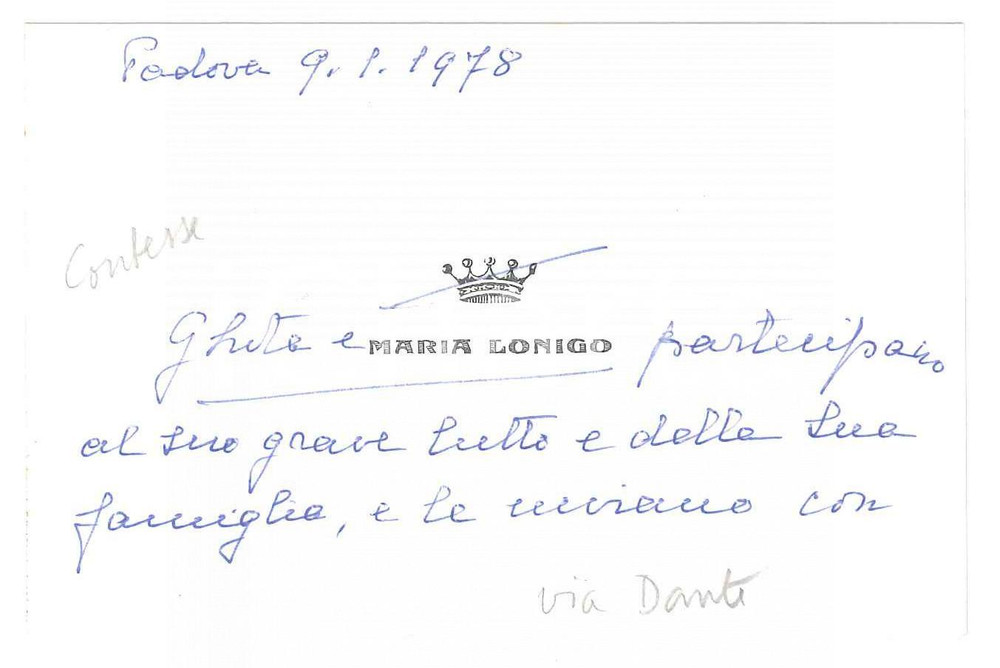 Padova 9.1.1978
Contesse
Ghita e MARIA LONIGO partecipano
al suo grave lutto e della sua
famiglia, e le inviano con
via Dante